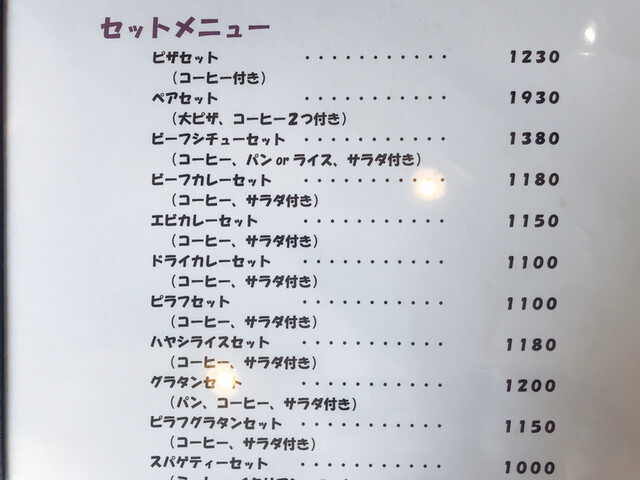 セットメニュー
ピザセット ・・・・・・・・・・・ 1230
（コーヒー付き）
ペアセット ・・・・・・・・・・・ 1930
（大ピザ、コーヒー2つ付き）
ビーフシチューセット ・・・・・・・・・・・ 1380
（コーヒー、パン or ライス、サラダ付き）
ビーフカレーセット ・・・・・・・・・・・ 1180
（コーヒー、サラダ付き）
エビカレーセット ・・・・・・・・・・・ 1150
（コーヒー、サラダ付き）
ドライカレーセット ・・・・・・・・・・・ 1100
（コーヒー、サラダ付き）
ピラフセット ・・・・・・・・・・・ 1100
（コーヒー、サラダ付き）
ハヤシライスセット ・・・・・・・・・・・ 1180
（コーヒー、サラダ付き）
グラタンセット ・・・・・・・・・・・ 1200
（パン、コーヒー、サラダ付き）
ピラフグラタンセット ・・・・・・・・・・・ 1150
（コーヒー、サラダ付き）
スパゲティーセット ・・・・・・・・・・・ 1000